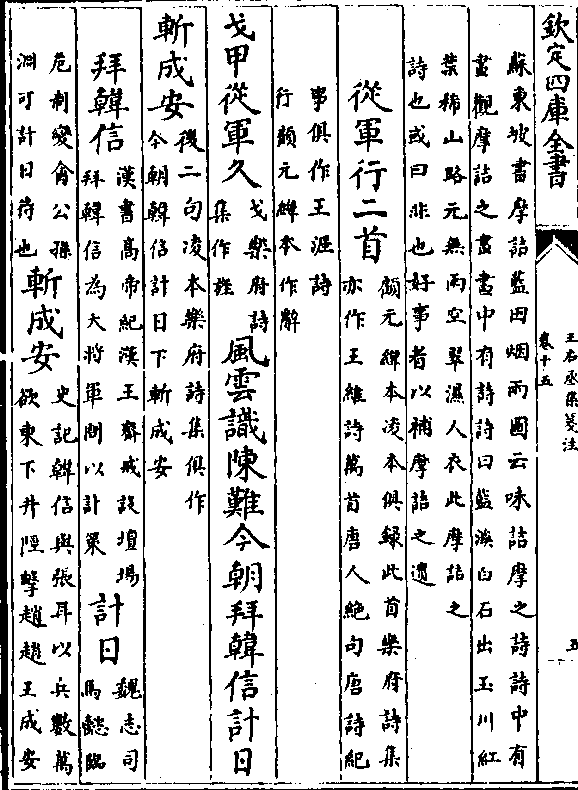 欽定四庫全書
王右丞集箋注
卷十五
五
蘇東坡書摩詰藍田烟雨圖云味詰摩之詩詩中有
畫觀摩詰之畫畫中有詩詩曰藍溪白石出玉川紅
葉稀山路元無雨空翠濕人衣此摩詰之
詩也或曰非也好事者以補摩詰之遺
從軍行二首
顧元緯本凌本俱録此首樂府詩集
亦作王維詩萬首唐人絶句唐詩紀
事俱作王涯詩
行顧元緯本作辭
戈甲從軍久
戈樂府詩
集作旌
風雲識陳難今朝拜韓信計日
斬成安
後二句凌本樂府詩集俱作
今朝韓信計日下斬成安
拜韓信
漢書高帝紀漢王齋戒設壇場
拜韓信為大將軍問以計策
計日
魏志司
馬懿臨
危制變禽公孫
淵可計日待也
斬成安
史記韓信與張耳以兵數萬
欲東下井陘擊趙趙王成安